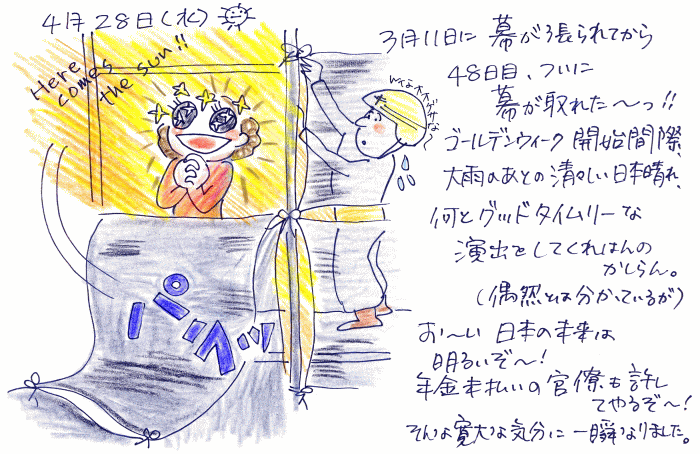 4月28日(水)
Here comes the sun!!
パラッ
3月11日に 幕が張られてから
48日目、ついに
幕が取れた〜っ!!
ゴールデンウィーク開始間際、
大雨のあとの清々しい日本晴れ、
何とグッドタイムリーな
演出をしてくれはんの
かしらん。
(偶然とは分かっているが)
お〜い 日本の未来は
明るいぞ〜!
年金未払いの官僚も許し
てやるぞ〜!
そんな寛大な気分に一瞬なりました。